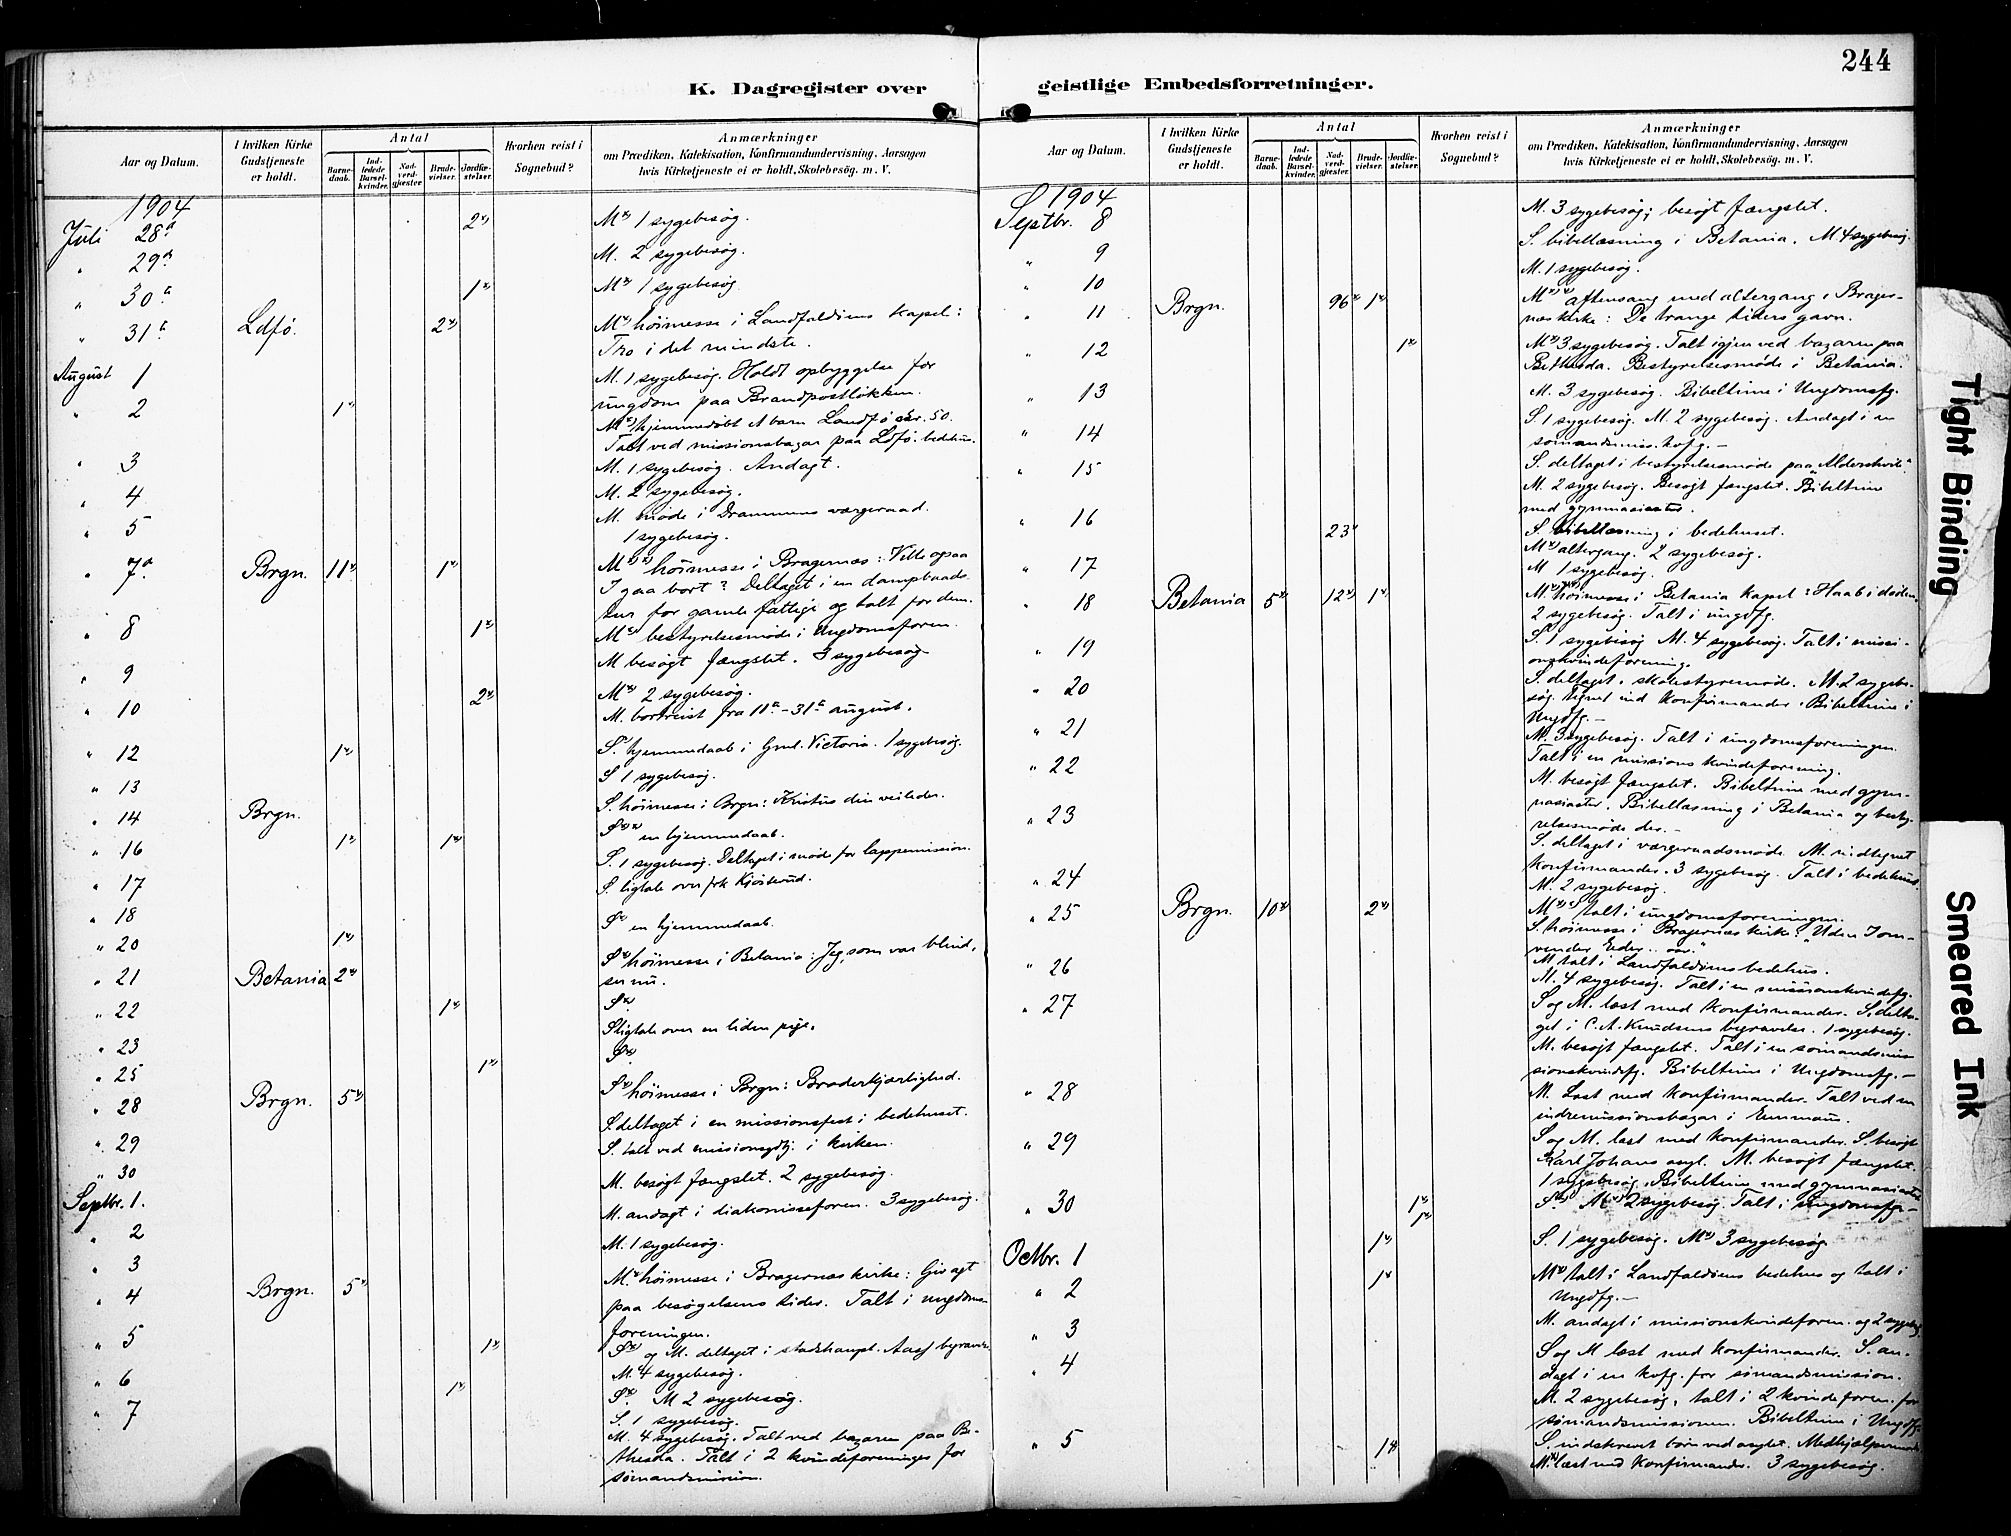 244
K. Dagregister over geistlige Embedsforretninger.
Aar og Datum.
I hvilken Kirke Gudstjeneste er holdt.
Antal
Barnedaab.
Indledede Barselkvinder.
Nadverdgjæster
Brudevielser.
Jordfæstelser.
Hvorhen reist i Sognebud?
Anmærkninger
om Prædiken, Katekisation, Konfirmandundervisning, Aarsagen
hvis Kirketjeneste ei er holdt, Skolebesøg. m. V.
1904
Juli 28de 2x) Mx) 1 sygebesøg.
" 29de M. 2 sygebesøg.
" 30te 1x) Mx) 1 sygebesøg
" 31te Ldfø. 2x) Mx) høimesse i Landfaldøens kapel:
Tro i det mindste.
August 1 M. 1 sygebesøg. Holdt opbyggelse for
ungdom paa Brandpostløkken.
" 2 1x) Mx) hjemmedøbt et barn Landfø nr. 50.
Talt ved missionsbazar paa Ldfø. bedehus.
" 3 M. 1 sygebesøg. Andagt.
" 4 M. 2 sygebesøg.
" 5 M. møde i Drammens værgeraad.
1 sygebesøg.
" 7de Brgn. 11x) 1x) Mx)x) høimesse i Bragernæs: Ville ogsaa
I gaa bort? Deltaget i en dampbaads-
tur for gamle fattige og talt for dem.
" 8 1x) Mx) bestyrelsesmøde i Ungdomsforen.
" 9 M besøgt fængslet. 3 sygebesøg
" 10 2x) Mx) 2 sygebesøg.
M. bortreist fra 11te-31te august.
" 12 1x) Sx) hjemmedaab i Grnl. Victoria. 1 sygebesøg.
" 13 S 1 sygebesøg.
" 14 Brgn. S. høimesse i Brgn: Kristus din veileder.
" 16 1x) 1x) Sx)x) en hjemmedaab.
" 17 S. 1 sygebesøg. Deltaget i møde for lappemission.
" 18 S. ligtale over frk Kjøsterud.
" 20 1x) Sx) en hjemmedaab.
" 21 Betania 2x) Sx) høimesse i Betania: Jeg, som var blind,
ser nu.
" 22 1x) Sx)
" 23 S ligtale over en liden pige.
" 25 1x) Sx)
" 28 Brgn. 5x) Sx) høimesse i Brgn: Broderkjærlighed.
" 29 S. deltaget i en missionsfest i bedehuset.
" 30 S. talt ved missionsgdtj. i kirken.
Septbr. 1. M. besøgt fængslet. 2 sygebesøg.
" 2 M. andagt i diakonisseforen. 3 sygebesøg.
" 3 M. 1 sygebesøg.
" 4 Brgn. 5x) Mx) høimesse i Bragernæs kirke: Giv agt
paa besøgelsens tider. Talt i ungdoms-
foreningen.
" 5 1x) Sx) og M. deltaget i stadshaupt. Aass begravelse.
M. 4 sygebesøg.
" 6 1x) Sx) M 2 sygebesøg.
" 7 S. 1 sygebesøg.
M. 4 sygebesøg. Talt ved bazaren paa Be-
thesda. Talt i 2 kvindeforeninger for
sømandsmission.
Aar og Datum.
I hvilken Kirke Gudstjeneste er holdt.
Antal
Barnedaab.
Indledede Barselkvinder.
Nadverdgjæster
Brudevielser.
Jordfæstelser.
Hvorhen reist i Sognebud?
Anmærkninger
om Prædiken, Katekisation, Konfirmandundervisning, Aarsagen
hvis Kirketjeneste ei er holdt, Skolebesøg. m. V.
1904
Septbr. 8 M. 3 sygebesøg; besøgt fængslet.
S. bibellæsning i Betania. M 4 sygebesøg.
" 9 M. 1 sygebesøg.
" 10
" 11 Brgn. 96x) 1x) Mx)x) aftensang med altergang i Brager-
næs kirke: De trange tiders gavn.
" 12 1x) Mx) 3 sygebesøg. Talt igjen ved bazaren paa
Bethesda. Bestyrelsesmøde i Betania.
" 13 M. 3 sygebesøg. Bibeltime i Ungdomsfg.
" 14 S. 1 sygebesøg. M. 2 sygebesøg. Andagt i en
sømandsmiss. kvfg. -
" 15 S. deltaget i bestyrelsesmøde paa "Aldershvile".
M. 2 sygebesøg. Besøgt fængslet. Bibeltime
med gymnasiaster.
" 16 23x) S. bibellæsning i bedehuset.
Mx) altergang. 2 sygebesøg.
" 17 M 1 sygebesøg.
" 18 Betania 5x) 12x) 1x) Mx)x)x) høimesse i Betania kapel: Haab i døden.
2 sygebesøg. Talt i ungdfg.
" 19 S. 1 sygebesøg M. 4 sygebesøg. Talt i missi-
onskvindeforening.
" 20 S. deltaget i skolestyremøde. M. 2 sygebe-
søg. Tegnet ind konfirmander. Bibeltime i
Ungdfg. -
" 21 M. 3 sygebesøg. Talt i ungdomsforeningen.
" 22 Talt i en missions kvindeforening.
M. besøgt fængslet. Bibeltime med gym-
nasiaster. Bibellæsning i Betania og besty-
relsesmøde der. -
" 23 S. deltaget i værgeraadsmøde. M. indtegnet
konfirmander. 3 sygebesøg. Talt i bedehuset.
" 24 M. 2 sygebesøg.
" 25 Brgn. 10x) 2x) Mx)x) talt i ungdomsforeningen.
S. høimesse i Bragernæs kirke: "Uden I om-
vender Eder .. osv."
" 26 M talt i Landfaldøens bedehus.
M. 4 sygebesøg. Talt i en missionskvindefg.
" 27 S og M. læst med konfirmander. S. delta-
get i C. A. Knudsens begravelse. 1 sygebesøg.
M. besøgt fængslet. Talt i en sømandsmis-
sionskvindefg. Bibeltime i Ungdomsfg. -
" 28 M. Læst med konfirmander. Talt ved en
indremissionsbazar i Emmaus.
" 29 S og M. læst med konfirmander. S. besøgt
Karl Johans asyl. M. besøgt fængslet.
1 sygebesøg. Bibeltime med gymnasiaster
" 30 1x) 1x) Sx) Mx) 2 sygebesøg. Talt i Ungdomsfg. -
Octbr. 1 1x) S. 1 sygebesøg. Mx) 3 sygebesøg.
" 2 1x) Mx) talt i Landfaldøens bedehus og talt i
Ungdfg. -
" 3 M. andagt i missionskvindeforen. og 2 sygebesøg.
" 4 S og M læst med konfirmander. S. an-
dagt i en kvfg. for sømandsmission.
M. 2 sygebesøg, talt i 2 kvindeforen. for
sømandsmissionen. Bibeltime i Ungdfg.
" 5 1x) S. indskrevet børn ved asylet.
Mx) læst med Konfirmander. 3 sygebesøg.
Tight Binding
Smeared Ink